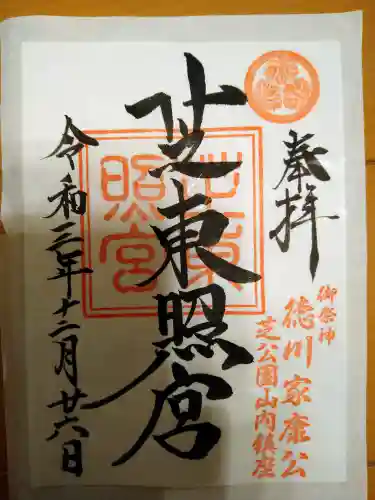 奉拝
御祭神
徳川家康公
芝公園山内鎮座
芝東照宮
芝東照宮
令和三年十二月廿六日